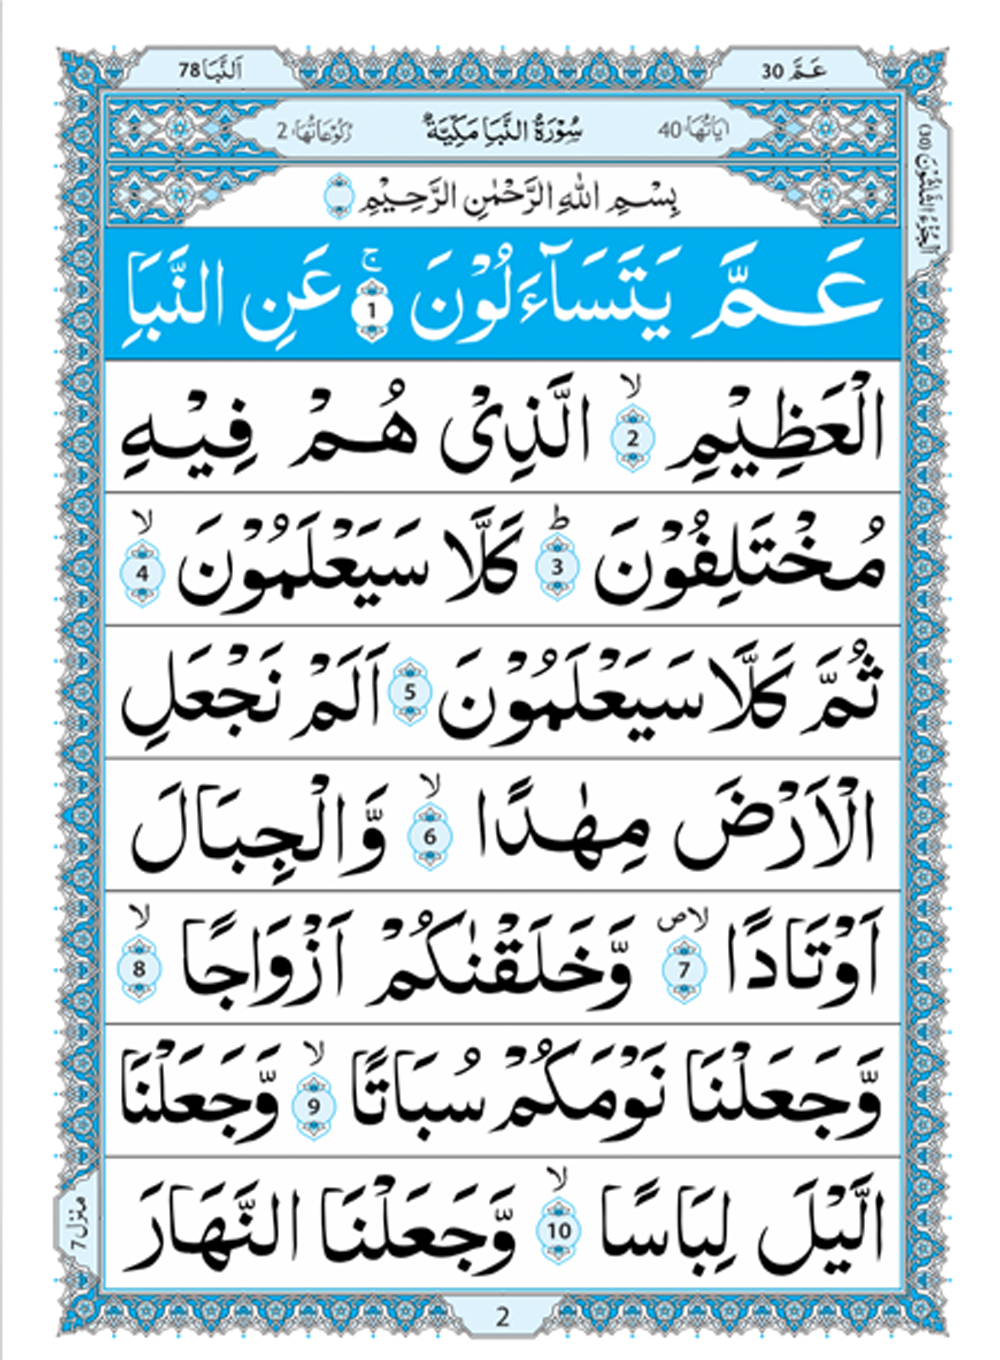 عَمَّ 30
اَلنَّبَا 78
اٰيَاتُهَا 40 سُوْرَةُ النَّبَاِ مَكِّيَّةٌ رُكُوْعَاتُهَا 2
اَلْجُزْءُ الثَّلٰثُوْنَ (30)
بِسْمِ اللّٰهِ الرَّحْمٰنِ الرَّحِيْمِ
عَمَّ يَتَسَآءَلُوْنَ ۚ 1 عَنِ النَّبَاِ
الْعَظِيْمِ ۙ 2 الَّذِىْ هُمْ فِيْهِ
مُخْتَلِفُوْنَ ؕ 3 كَلَّا سَيَعْلَمُوْنَ ۙ 4
ثُمَّ كَلَّا سَيَعْلَمُوْنَ 5 اَلَمْ نَجْعَلِ
الْاَرْضَ مِهٰدًا ۙ 6 وَّالْجِبَالَ
اَوْتَادًا ۙ ص 7 وَّخَلَقْنٰكُمْ اَزْوَاجًا ۙ 8
وَّجَعَلْنَا نَوْمَكُمْ سُبَاتًا ۙ 9 وَّجَعَلْنَا
الَّيْلَ لِبَاسًا ۙ 10 وَّجَعَلْنَا النَّهَارَ
منزل 7
2